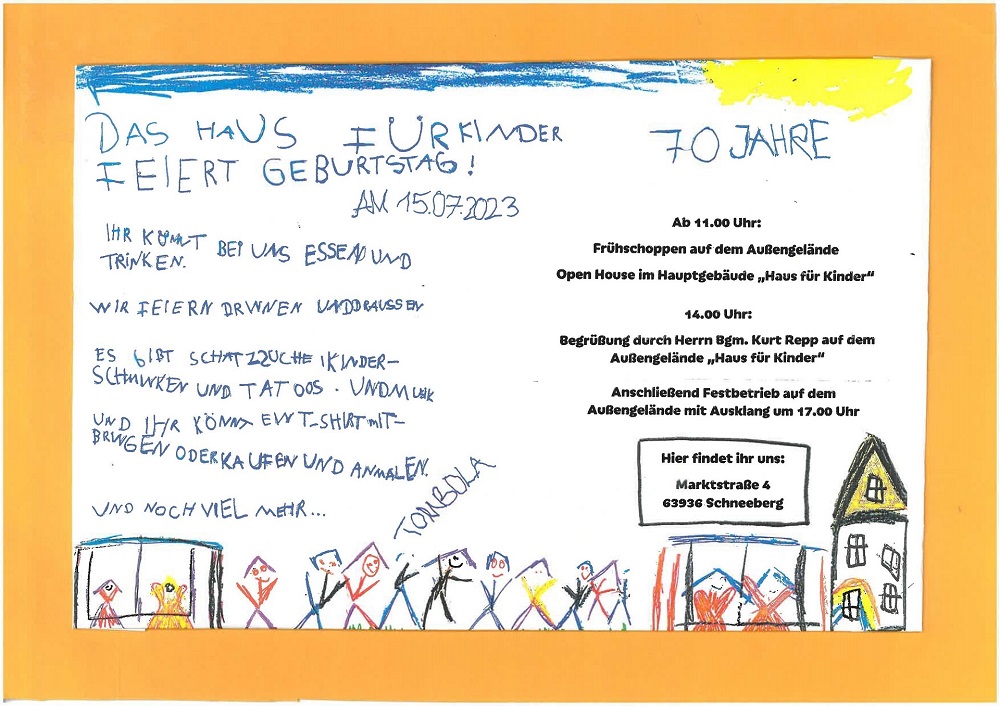 DAS HAUS FÜR KINDER
FEIERT GEBURTSTAG!
AM 15.07.2023
IHR KÖNNT BEI UNS ESSEN UND
TRINKEN.
WIR FEIERN DRINNEN UND DRAUSSEN
ES GIBT SCHATZSUCHE KINDER-
SCHMINKEN UND TATOOS. UND MUSIK
UND IHR KÖNNT EIN T-SHIRT MIT-
BRINGEN ODER KAUFEN UND ANMALEN.
UND NOCH VIEL MEHR...
TOMBOLA
70 JAHRE
Ab 11.00 Uhr:
Frühschoppen auf dem Außengelände
Open House im Hauptgebäude „Haus für Kinder“
14.00 Uhr:
Begrüßung durch Herrn Bgm. Kurt Repp auf dem
Außengelände „Haus für Kinder“
Anschließend Festbetrieb auf dem
Außengelände mit Ausklang um 17.00 Uhr
Hier findet ihr uns:
Marktstraße 4
63936 Schneeberg